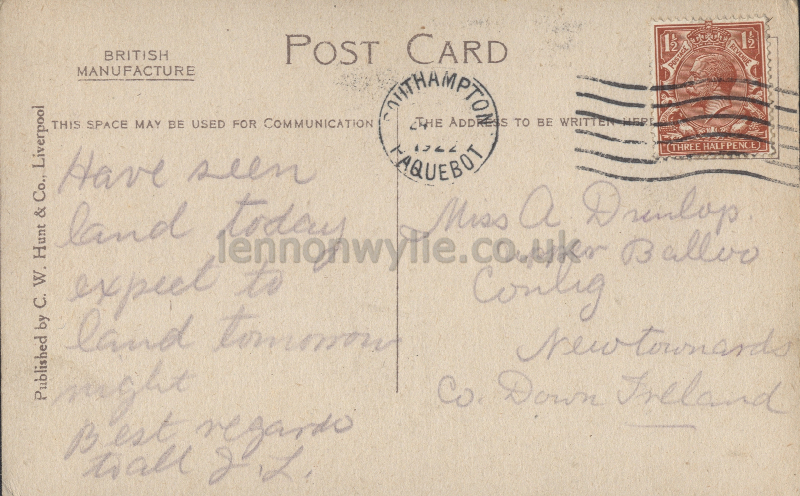 BRITISH
MANUFACTURE
POST CARD
SOUTHAMPTON
24
1922
PAQUEBOT
1½ 1½
POSTAGE REVENUE
THREE HALFPENCE
THIS SPACE MAY BE USED FOR COMMUNICATION
THE ADDRESS TO BE WRITTEN HERE
Published by C. W. Hunt & Co., Liverpool
Have seen
land today
expect to
land tomorrow
night
Best regards
to all J. L.
Miss A Dunlop.
upper Balloo
Conlig
Newtownards
Co. Down Ireland
lennonwylie.co.uk